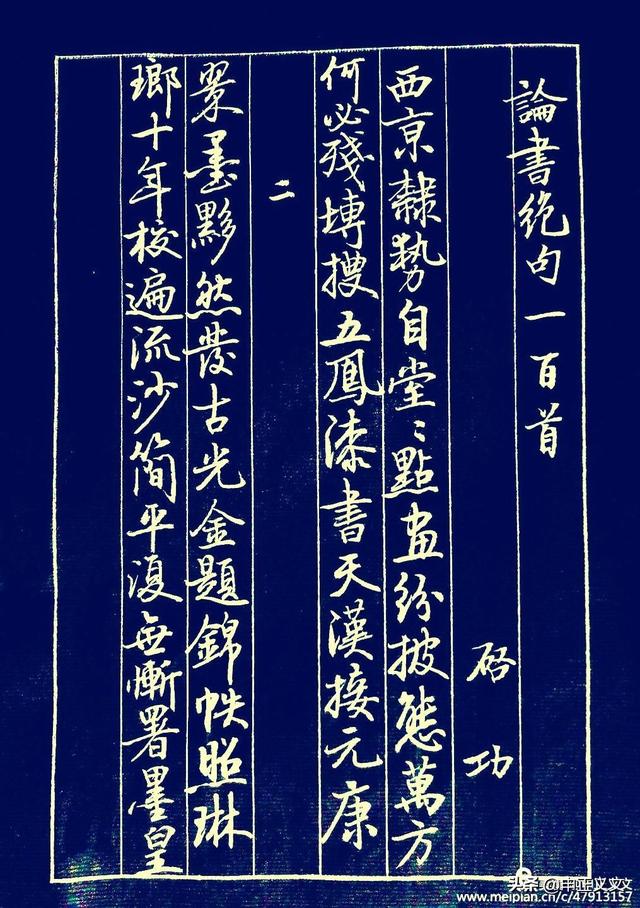 論書絶句一百首
启功
西京隸勢自堂〻點畫紛披態萬方
何必殘塼搜五鳳漆書天漢接元康
二
翠墨黟然發古光金題錦帙照琳
瑯十年校遍流沙簡平復無慚署墨皇
头条
www.meipian.cn/c/47913157